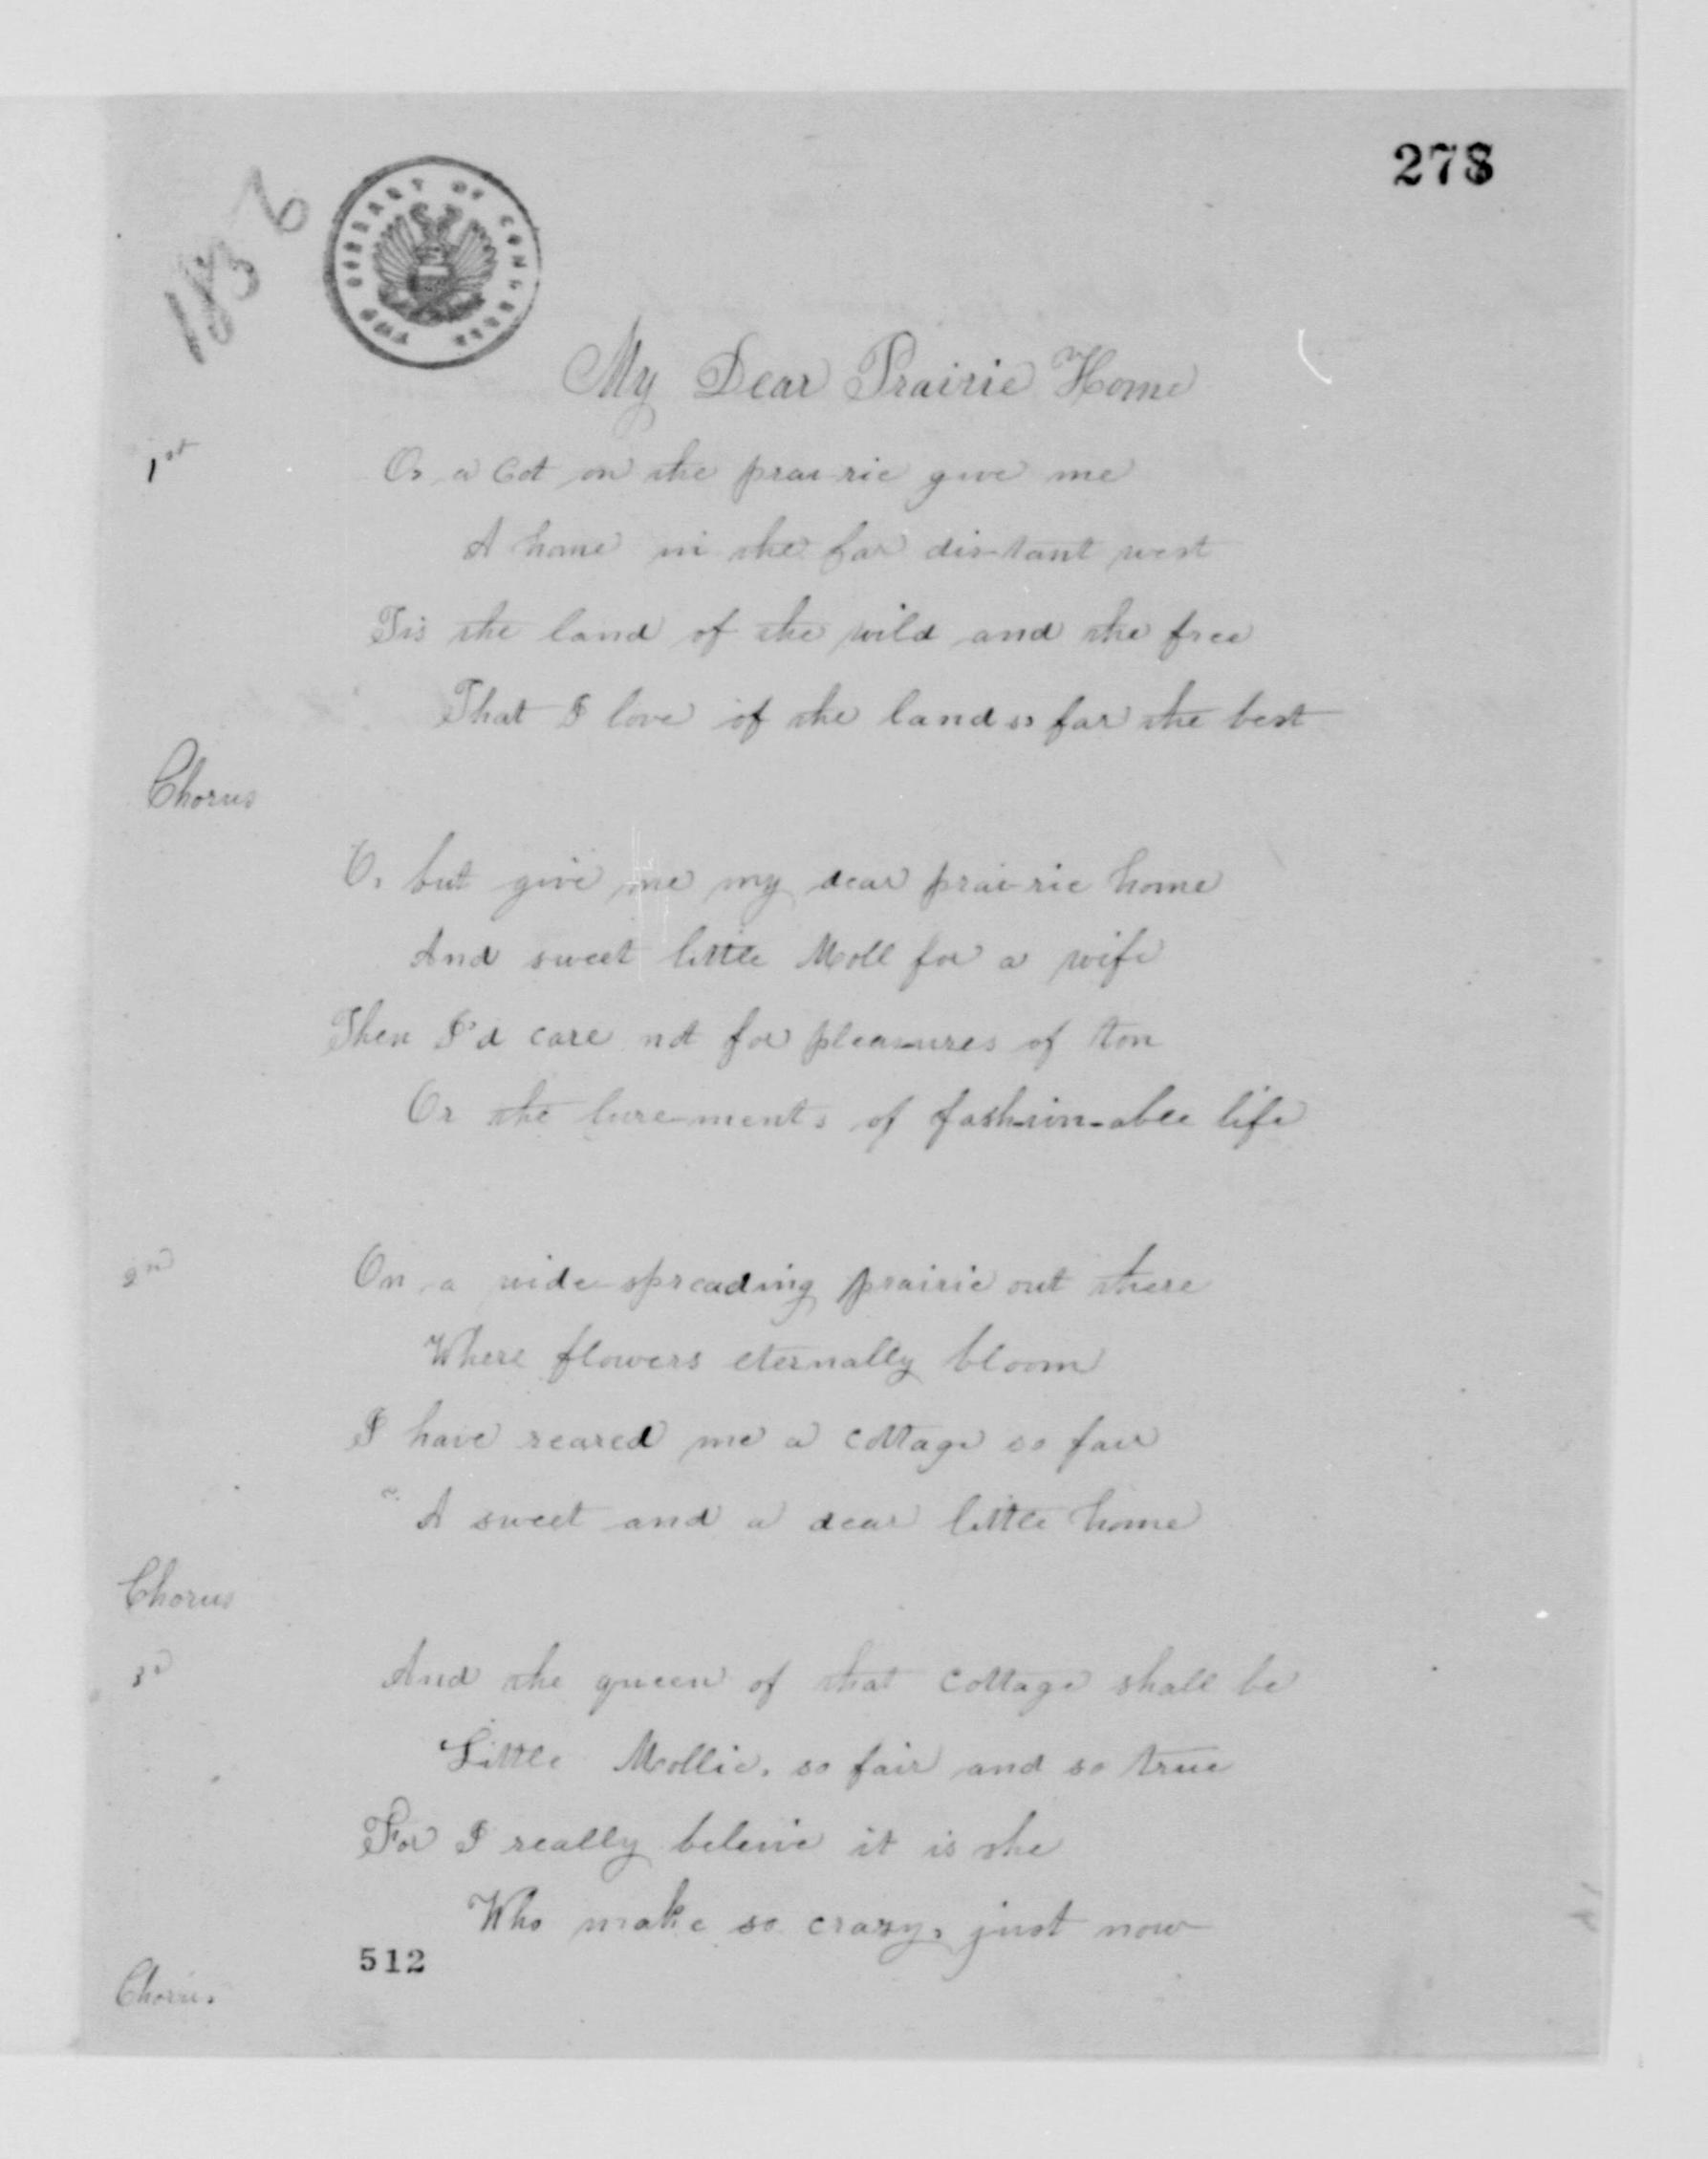 278
THE LIBRARY OF CONGRESS
My Dear Prairie Home
1st
O, a Cot on the prai-rie give me
A home in the far dis-tant west
Tis the land of the wild and the free
That I love of the lands far the best
Chorus
O, but give me my dear prai-rie home
And sweet little Moll for a wife
Then I'd care not for pleas-ures of ton
Or the lure-ments of fash-ion-able life
2nd
On a wide spreading prairie out there
Where flowers eternally bloom
I have reared me a cottage so fair
A sweet and a dear little home
Chorus
3d
And the queen of that cottage shall be
Little Mollie, so fair and so true
For I really beleive it is she
Who make so crazy, just now
512
Chorus